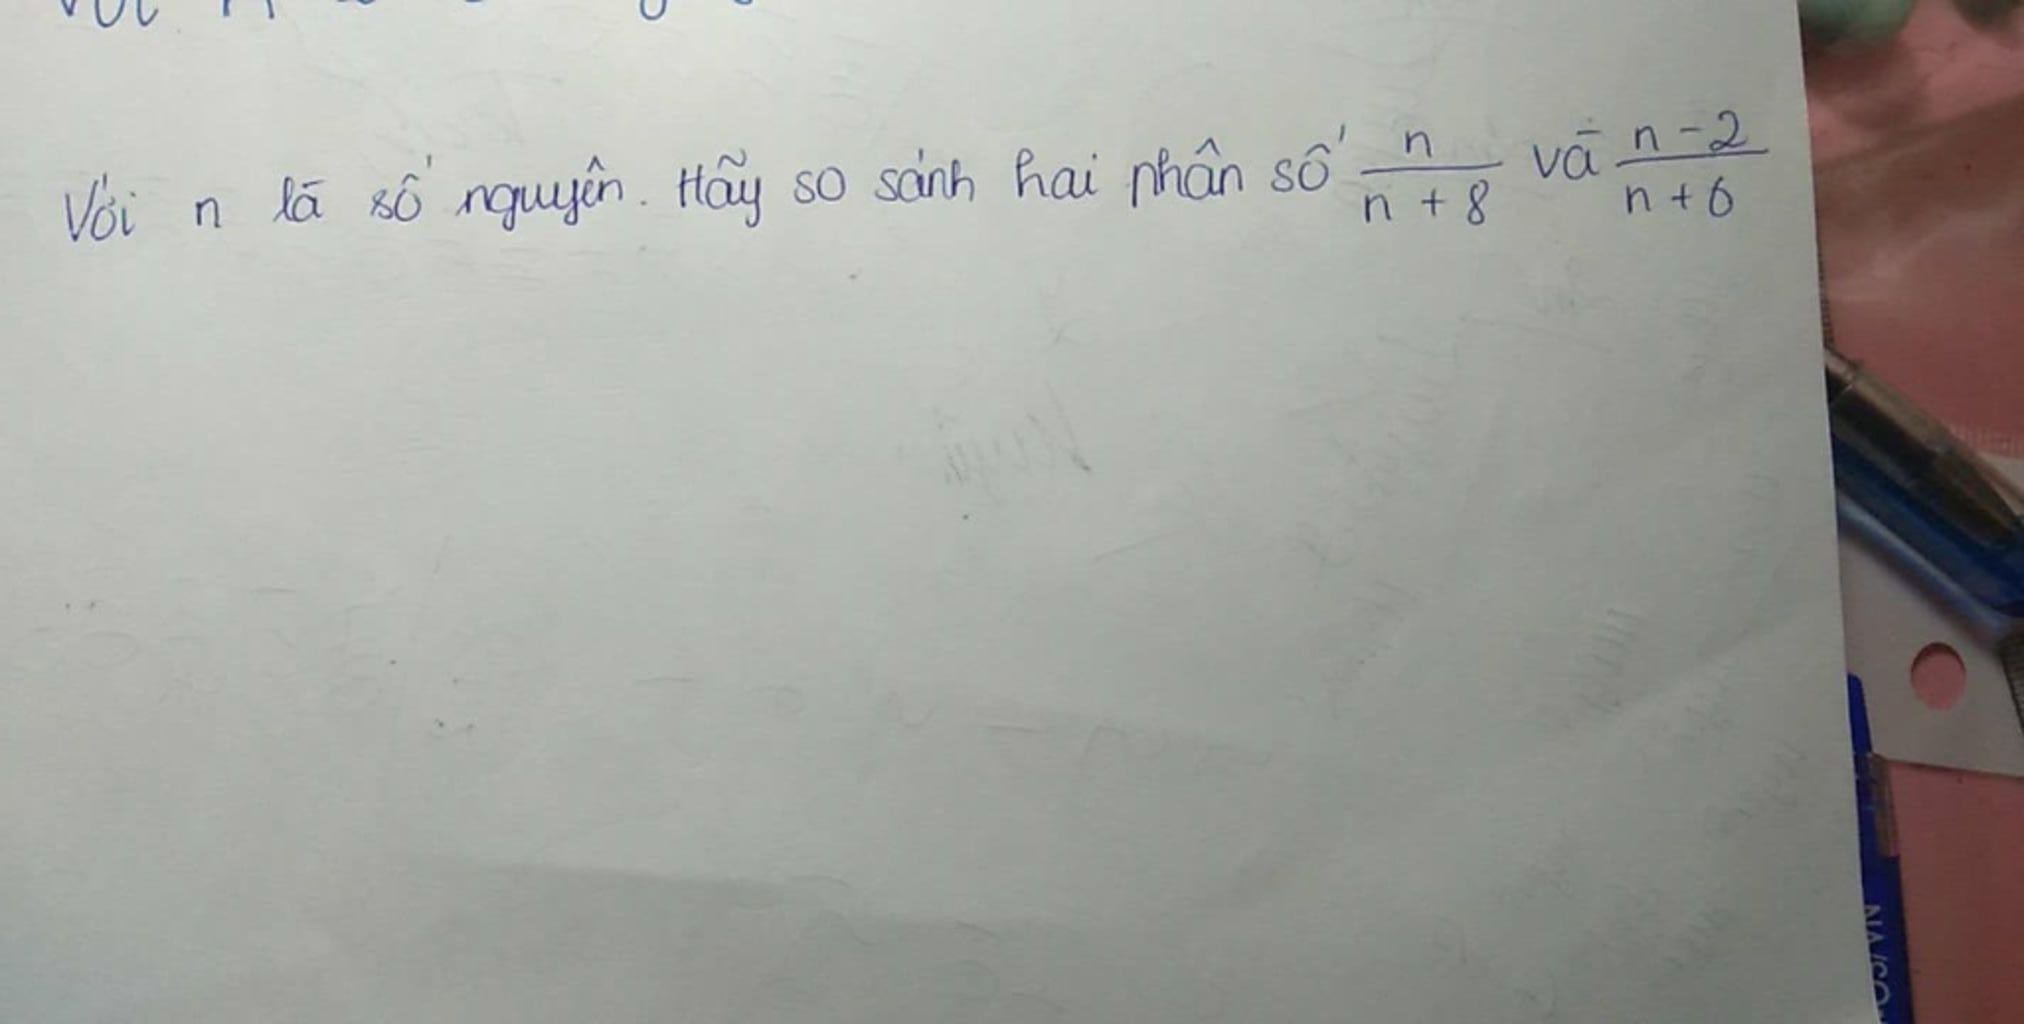 Với n là số nguyên. Hãy so sánh hai phân số n/(n + 8) và (n - 2)/(n + 6)